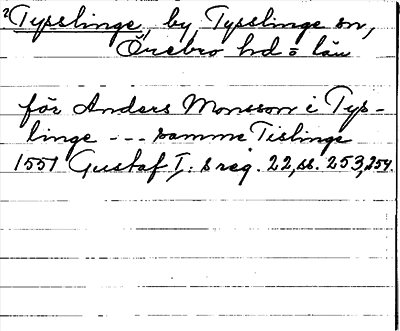 2 Tysslinge, by, Tysslinge sn,
Örebro hd o län
för Anders Monsson i Tys-
linge --- samme Tislinge
1551 Gustaf I:s reg. 22, ss. 253, 254.